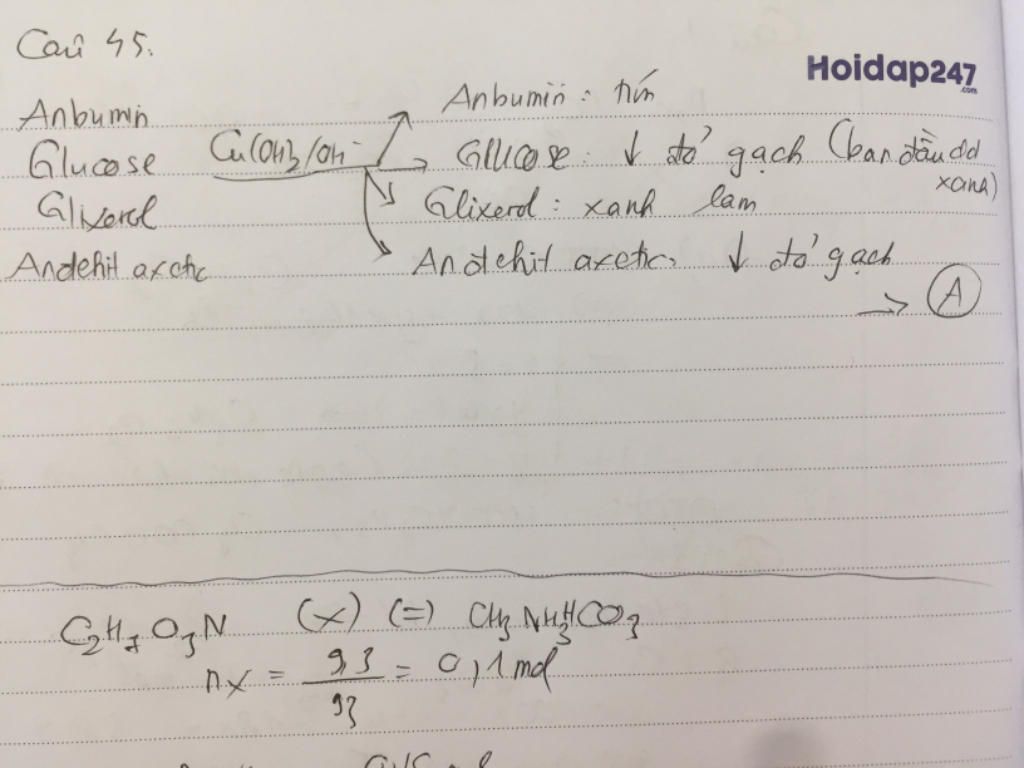 Câu 45.
Hoidap247
.com
Anbumin
Glucose
Glixerol
Andehit axetic
Cu(OH)2/OH-
Anbumin : tím
Glucose : ↓ đỏ gạch (ban đầu dd
xanh)
Glixerol : xanh lam
Andehit axetic : ↓ đỏ gạch
→ A
C2H7O3N (X) (=) CH3NH3HCO3
nx = 9,3 / 93 = 0,1 mol